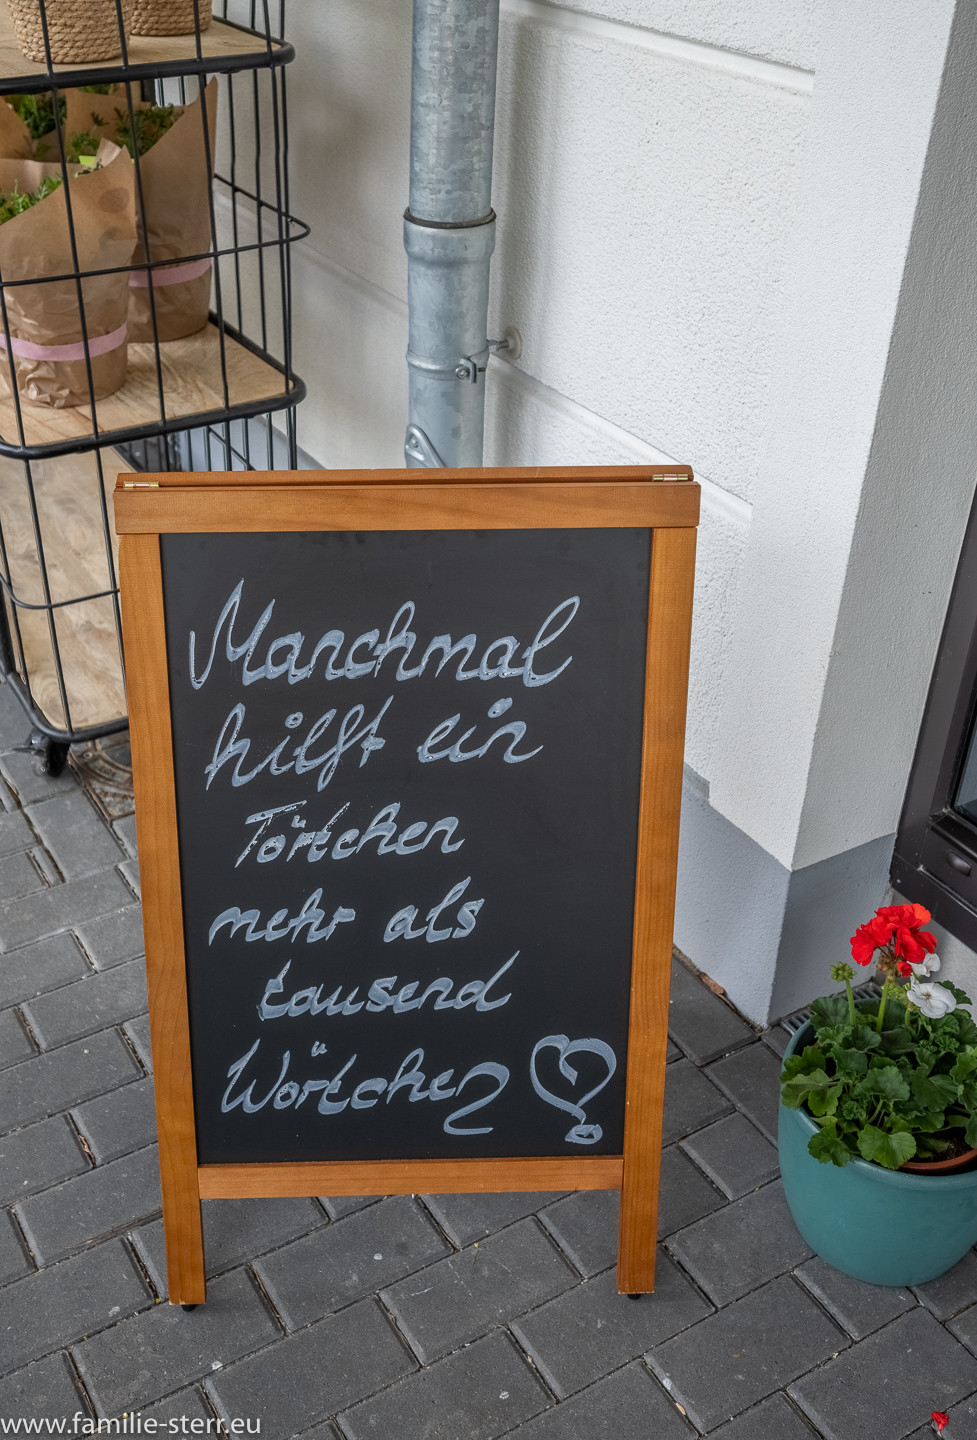 Manchmal
hilft ein
Törtchen
mehr als
tausend
Wörtchen
www.familie-sterr.eu